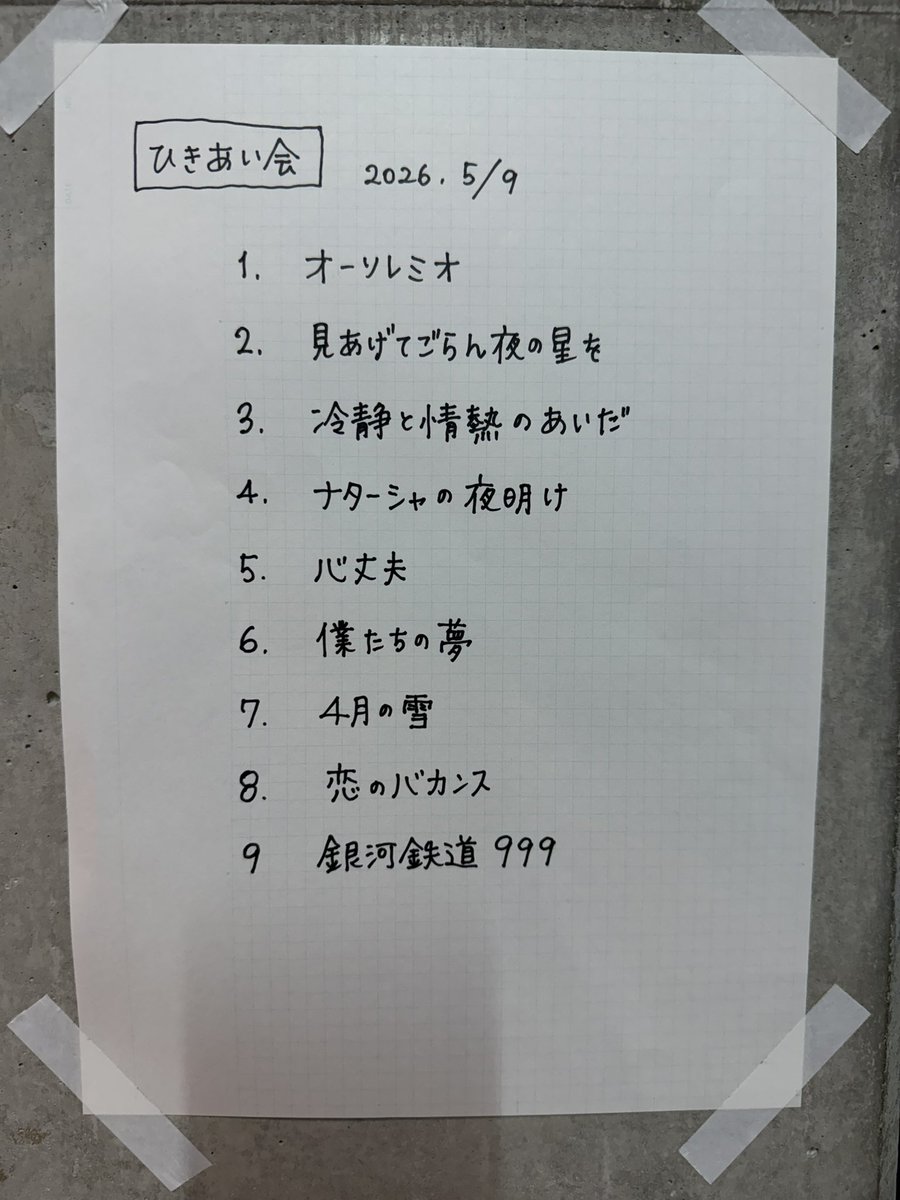 ひきあい会 2026.5/9
1. オーソレミオ
2. 見あげてごらん夜の星を
3. 冷静と情熱のあいだ
4. ナターシャの夜明け
5. 心丈夫
6. 僕たちの夢
7. 4月の雪
8. 恋のバカンス
9 銀河鉄道999